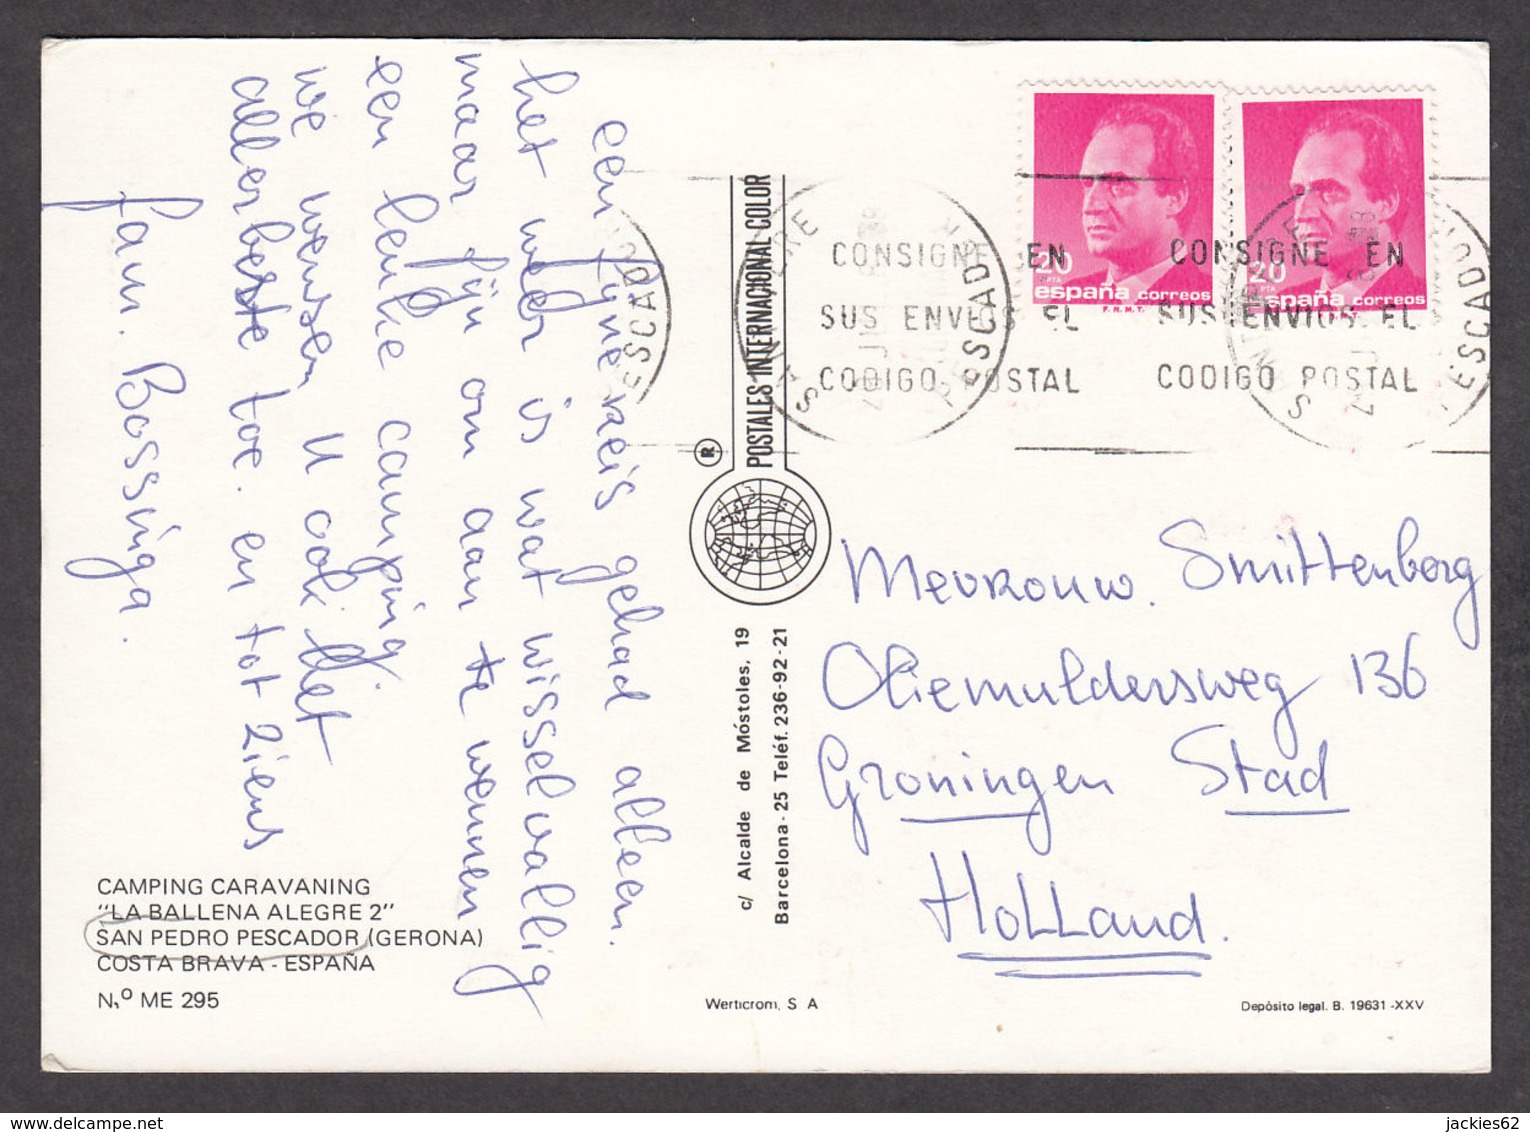 een fyne reis gehad alleen.
het weer is wat wisselvallig
maar fijn om aan te wennen
een leuke camping
we wensen U ook het
allerbeste toe. en tot ziens
fam. Bossinga.
CAMPING CARAVANING
"LA BALLENA ALEGRE 2"
SAN PEDRO PESCADOR (GERONA)
COSTA BRAVA - ESPAÑA
N.º ME 295
POSTALES INTERNACIONAL COLOR
®
c/ Alcalde de Móstoles, 19
Barcelona-25 Teléf. 236-92-21
Werticrom, S A
20 PTA
españa correos
F.N.M.T.
20 PTA
españa correos
CONSIGNE EN
SUS ENVIOS EL
CODIGO POSTAL
CONSIGNE EN
SUS ENVIOS EL
CODIGO POSTAL
PESCADOR
Mevrouw. Smittenberg
Oliemuldersweg 136
Groningen Stad
HoLLand.
Depósito legal. B. 19631-XXV
jackies62